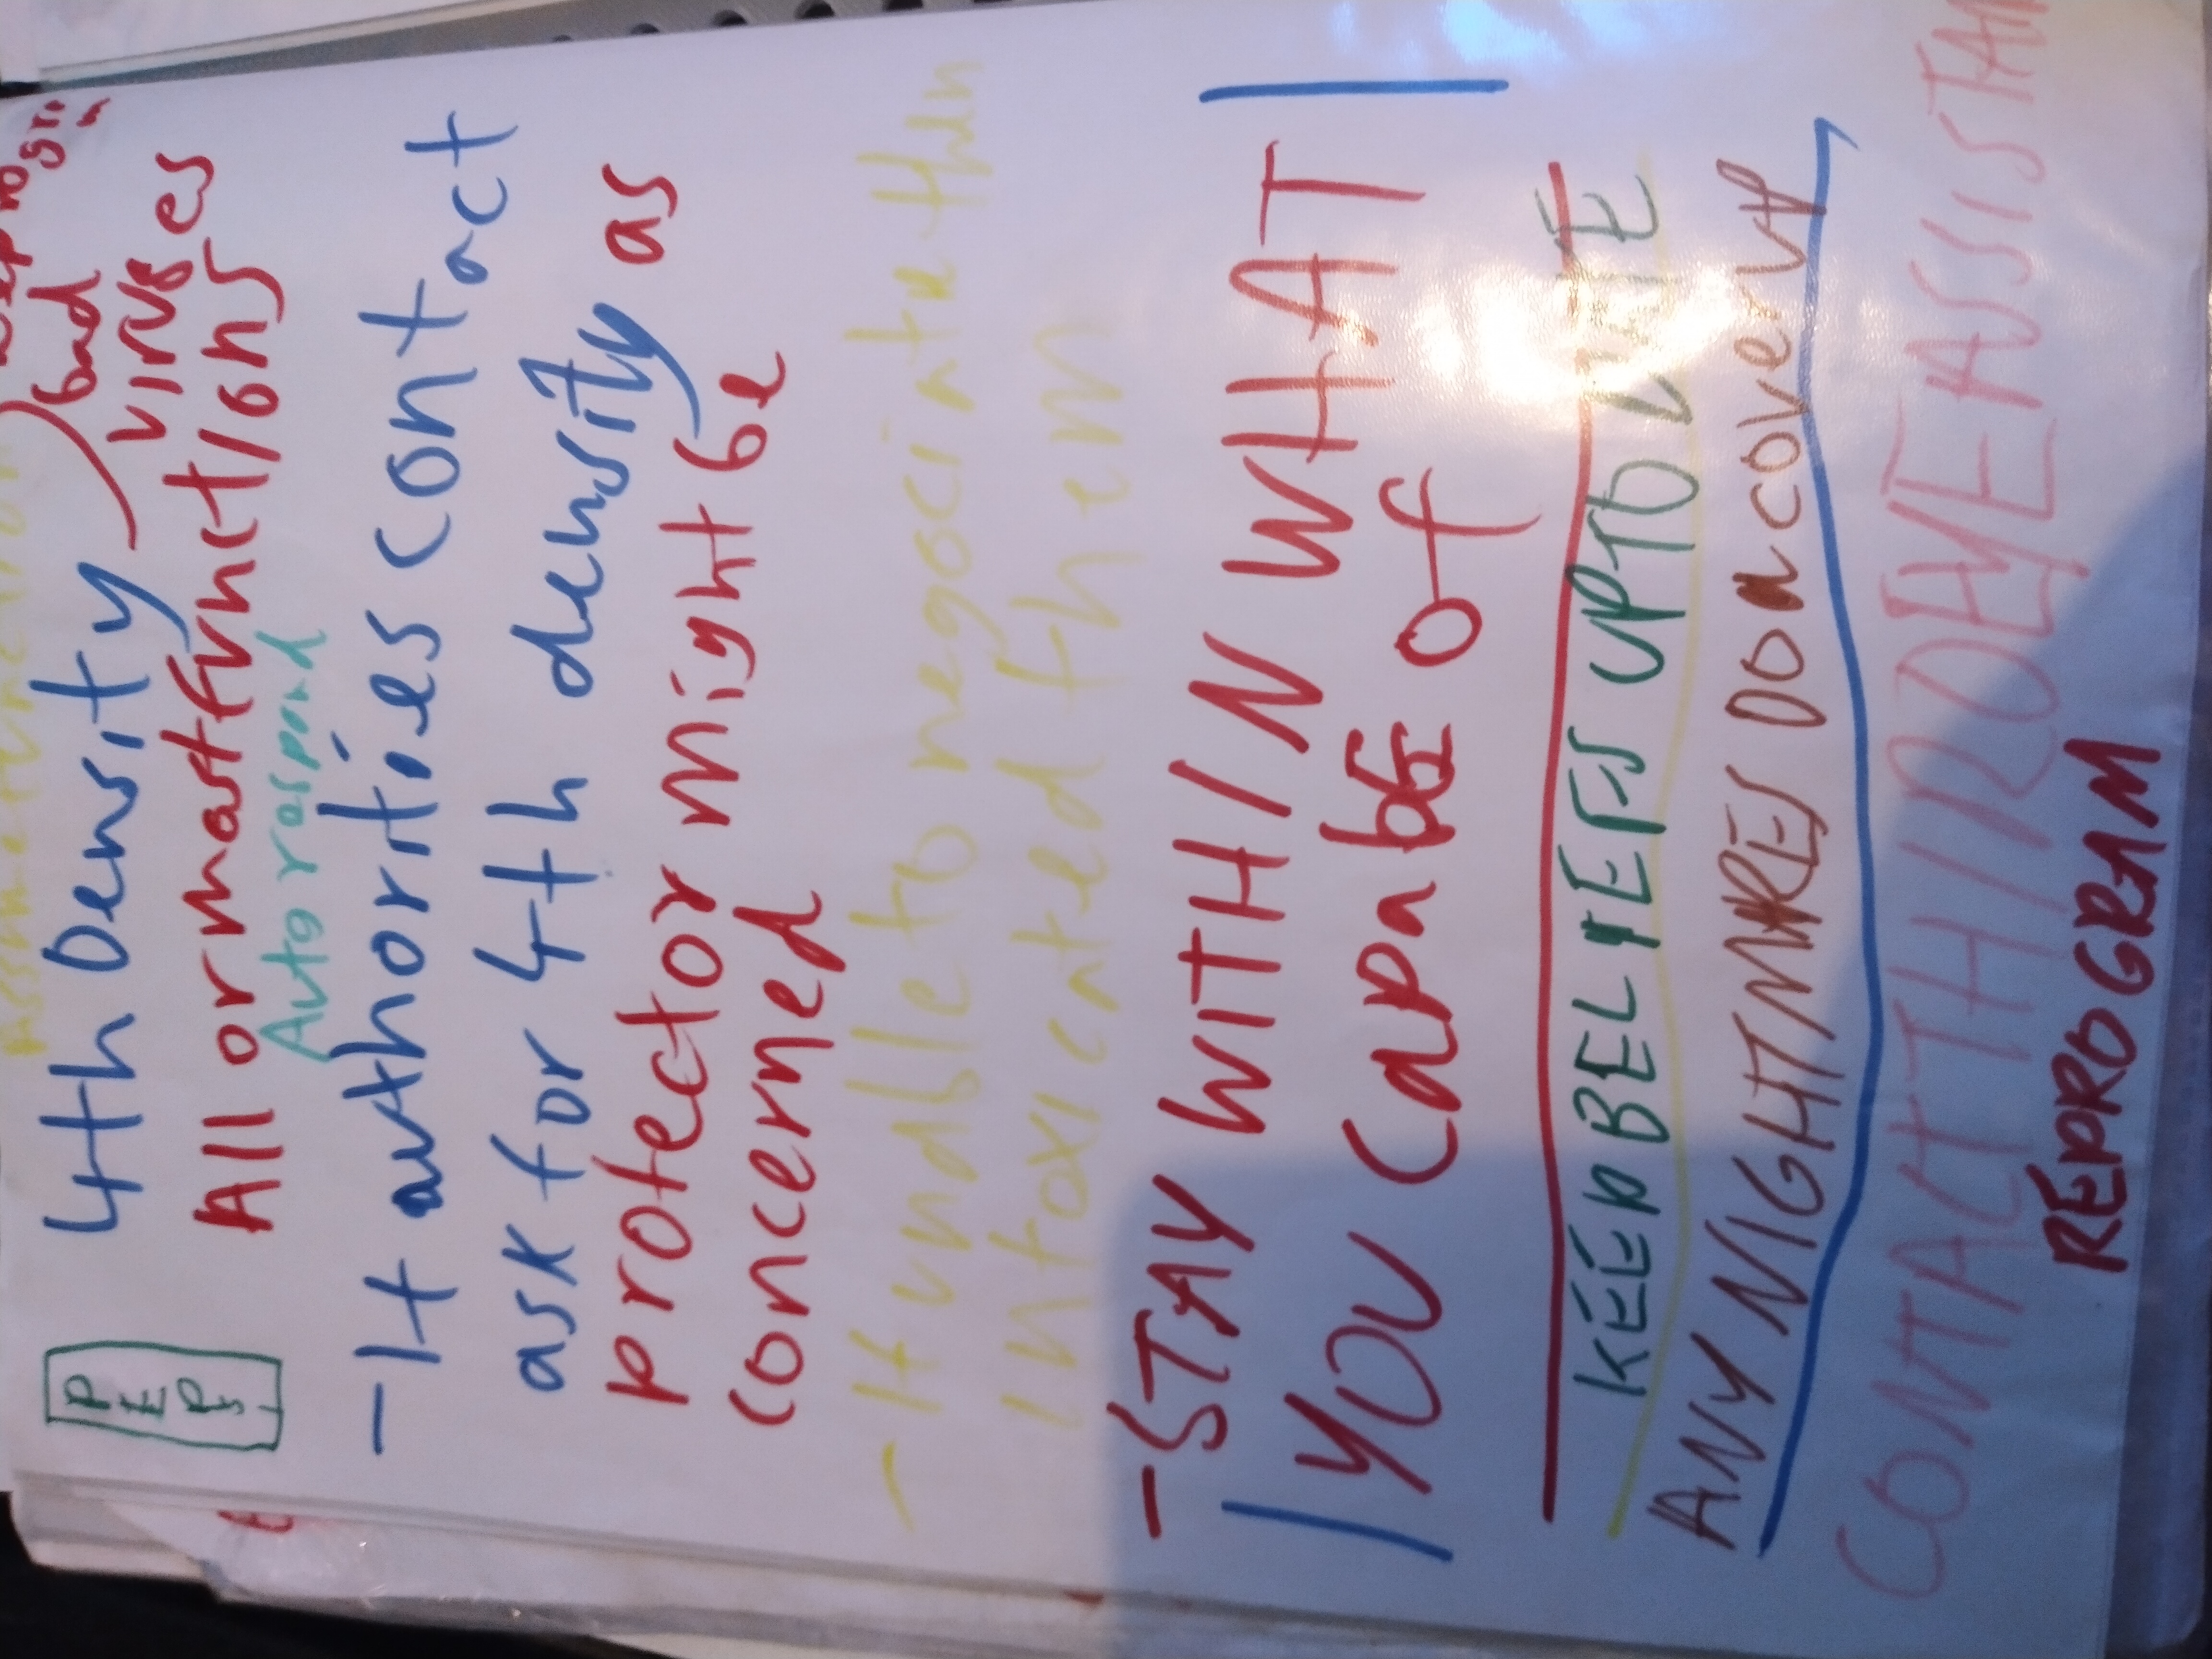 4th Density
bad
viruses
All or mastfunctions
Auto respond
-If authorities contact
ask for 4th density as
protector might be
concerned
-If unable to negociate then
intoxicated them
-STAY WITHIN WHAT
YOU CapabE of
KEEP BELYEFS UPTO DATE
ANY NIGHTMARES DO a coverup
CONTACT
REPROGRAM